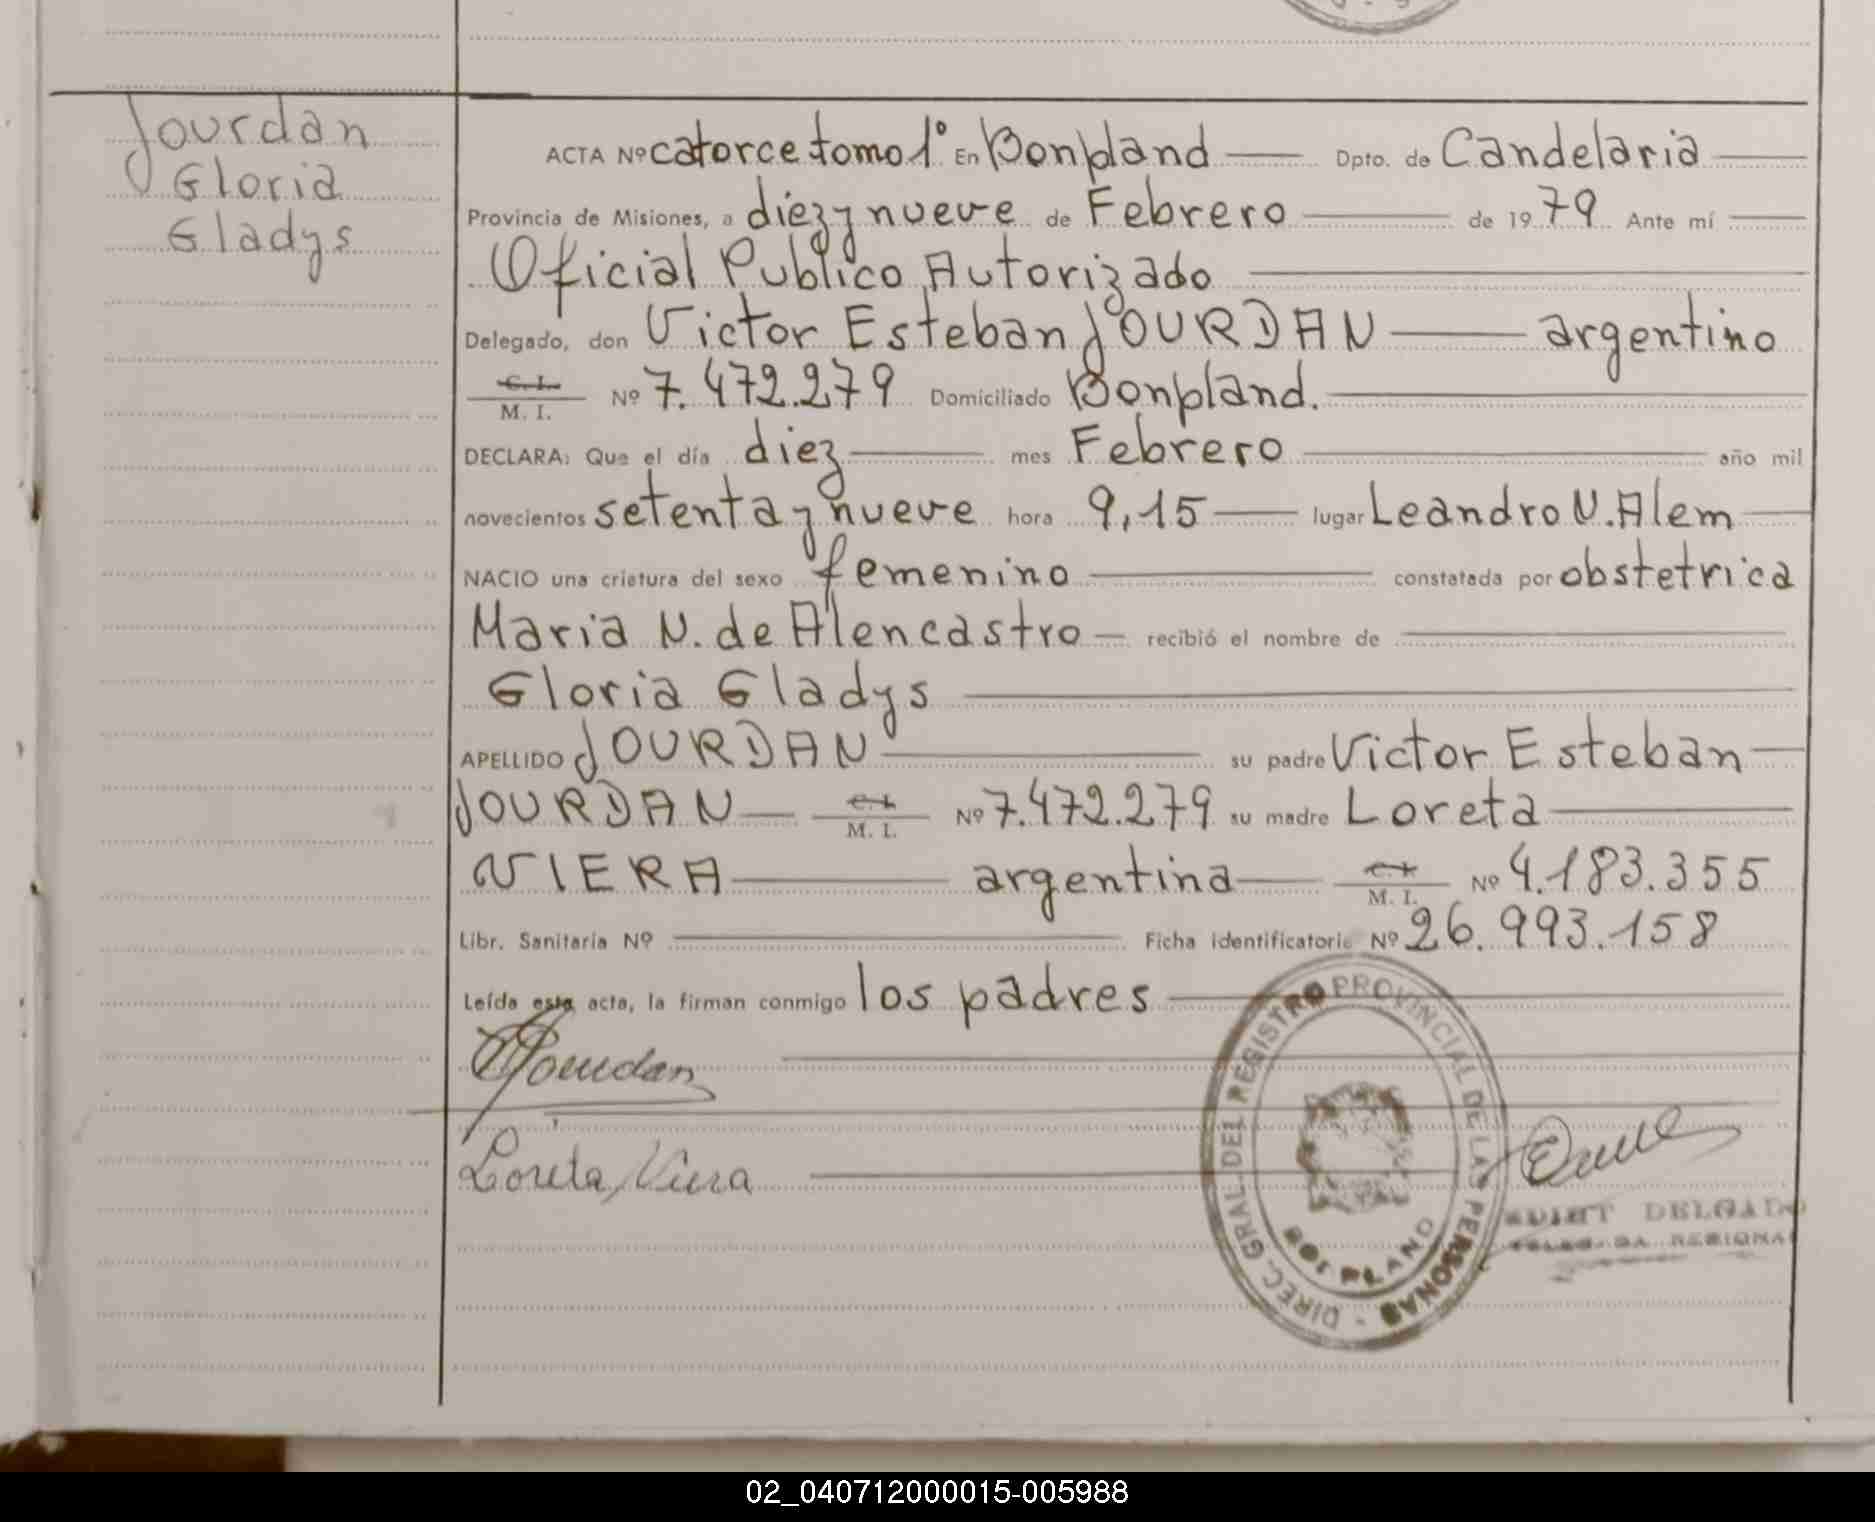 Jourdan
Gloria
Gladys
ACTA Nº catorce tomo 1º En Bonpland Dpto. de Candelaria
Provincia de Misiones, a diez y nueve de Febrero de 1979 Ante mí
Oficial Publico Autorizado
Delegado, don Victor Esteban JOURDAN argentino
C. I.
M. I. Nº 7.472.279 Domiciliado Bonpland.
DECLARA: Que el día diez mes Febrero año mil
novecientos setenta y nueve hora 9,15 lugar Leandro N. Alem
NACIO una criatura del sexo femenino constatada por obstetrica
Maria N. de Alencastro recibió el nombre de
Gloria Gladys
APELLIDO JOURDAN su padre Victor Esteban
JOURDAN C.I. M. I. Nº 7.472.279 su madre Loreta
VIERA argentina C.I. M. I. Nº 4.183.355
Libr. Sanitaria Nº Ficha identificatoria Nº 26.993.158
Leída esta acta, la firman conmigo los padres
Jourdan
Loreta Viera
DIREC. GRAL. DEL REGISTRO PROVINCIAL DE LAS PERSONAS
BONPLAND
DELGADO
DELEGADA REGIONAL
02_040712000015-005988